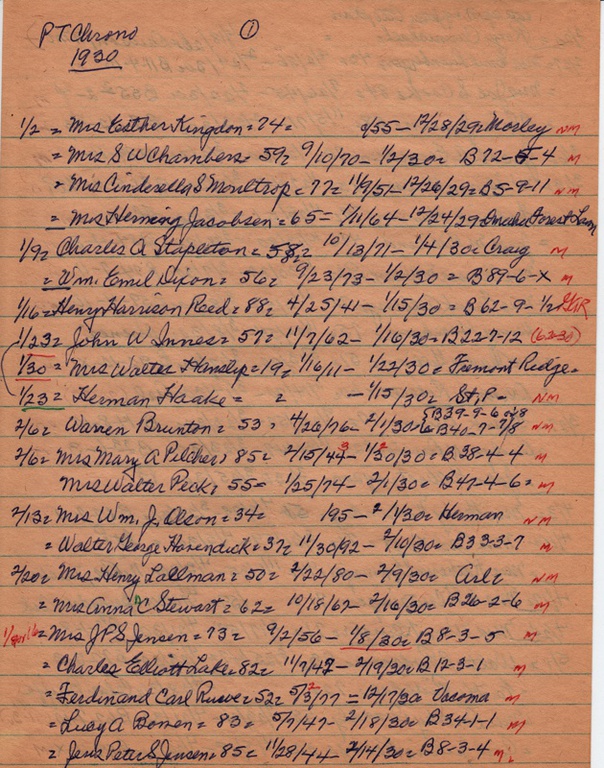 PT Chrono ①
1930
1/2 = Mrs Esther Kingdon = 74 = /55 - 12/28/29 = Morley NM
= Mrs S W Chambers = 59 = 9/10/70 - 1/2/30 = B 72-5-4 M
= Mis Cinderella S Moultrop = 77 = 11/9/51 - 12/26/29 = B5-9-11 NM
= Mrs Herning Jacobsen = 65 = 1/11/64 - 12/24/29 Omaha Forest Lawn
1/9 = Charles A Stapleton = 58 = 10/13/71 - 1/4/30 = Craig M
= Wm. Emil Dixon = 56 = 9/23/73 - 1/2/30 = B 89-6-X M
1/16 = Henry Harrison Reed = 88 = 4/25/41 - 1/15/30 = B 62-9-1/2 GAR
1/23 = John W Innes = 57 = 11/7/62 - 1/16/30 = B 22-7-12
1/30 = Mrs Walter Hanslip = 19 = 1/16/11 - 1/22/30 = Fremont Ridge =
1/23 = Herman Haake = = - 1/15/30 = St. P - NM
B39-9-6 or 8
2/6 = Warren Brunton = 53 = 4/26/76 - 2/1/30 = B40-7-7/8 NM
2/6 = Mrs Mary A Pilcher = 85 = 2/15/44 3 - 1/30/30 = B 38-4-4 M
Mrs Walter Peck = 55 = 1/25/74 - 2/1/30 = B47-4-6 = M
2/13 = Mrs Wm. J. Olson = 34 = /95 - 2/1/30 = Herman NM
= Walter George Havendick = 37 = 11/30/92 - 2/10/30 = B 33-3-7 M
2/20 = Mrs Henry Lallman = 50 = 2/22/80 - 2/9/30 = Arl = NM
= Mrs Anna C Stewart = 62 = 10/18/67 - 2/16/30 = B 26-2-6 M
= Mrs J P S Jensen = 73 = 9/2/56 - 1/8/30 = B 8-3-5 M
= Charles Elliott Lake = 82 = 11/7/47 - 2/19/30 = B 12-3-1 M
= Ferdinand Carl = 52 = 5/3/77 = 12/17/30 = Tacoma M
= Lucy A Bowen = 83 = 5/7/47 - 2/18/30 = B 34-1-1 M
= Jens Peter S Jensen = 85 = 11/28/44 - 2/14/30 = B 8-3-4 M